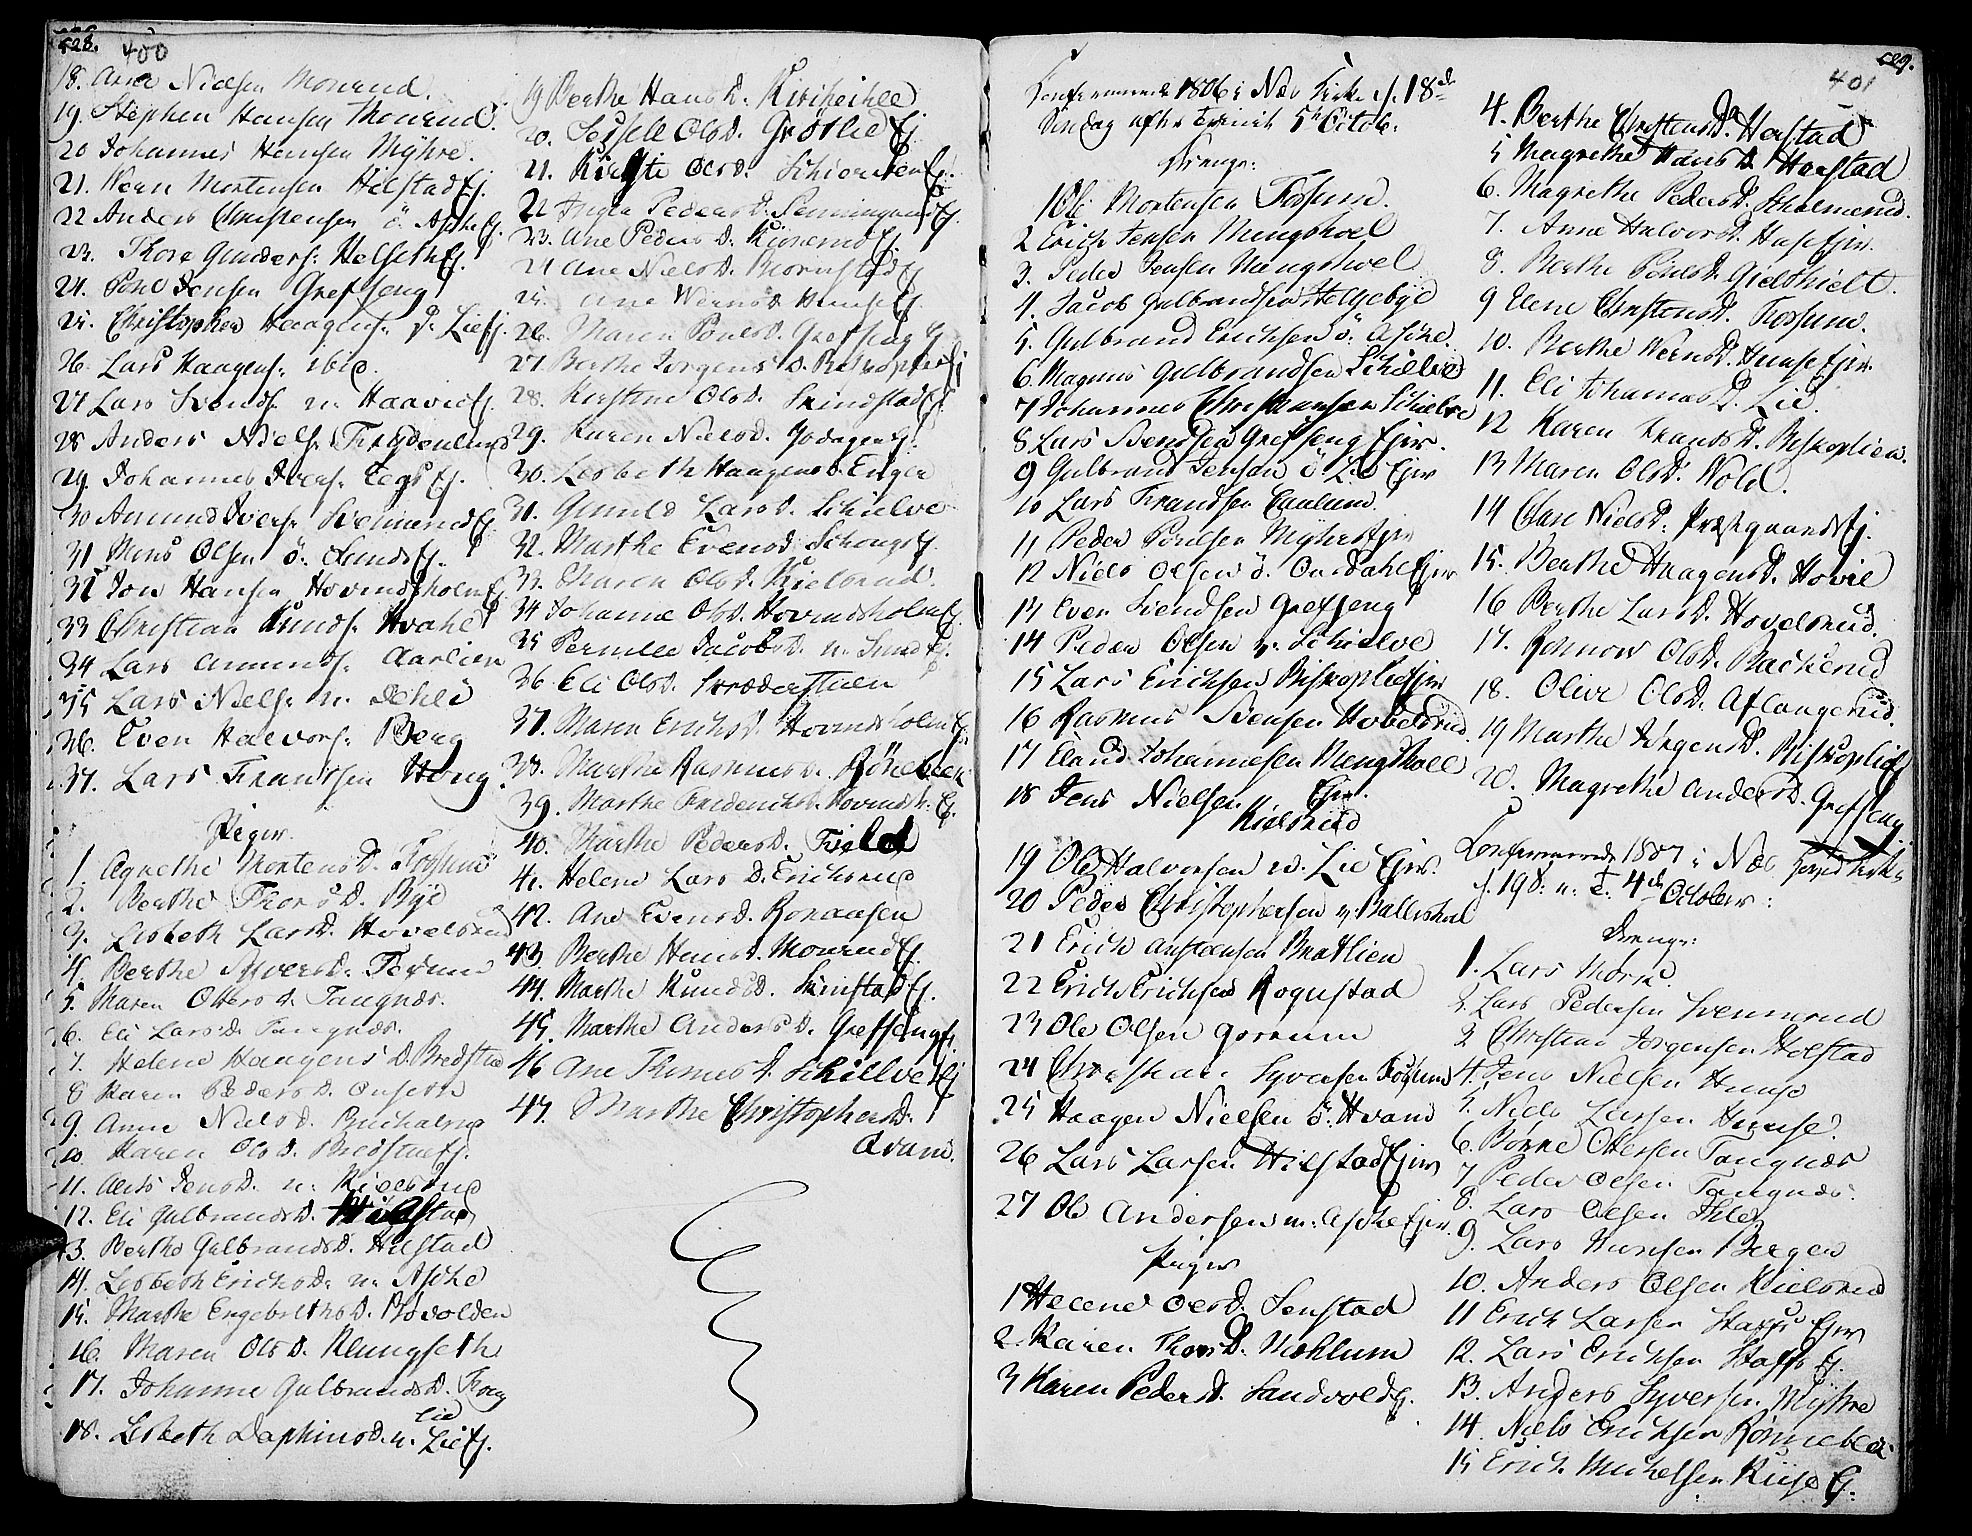 528.
400
18. Arne Nielsen Monrud.
19. Stephen Hansen Monrud.
20 Johannes Hansen Myhre.
21. Wern Mortensen Hilstad Ej.
22 Anders Christensen ö. Aske Ej.
23. Thore Gunders: Helseth Ej.
24. Povel Jensen Grefseng
25. Christopher Haagens: Lie Ej.
26. Lars Haagens: ibid.
27 Lars Svends: n: Haavie Ej.
28 Anders Niels: Frydenlund
29. Johannes Ivers: Tegs Ej.
30 Amund Ivers: Svennerud Ej.
31 Mons Olsen ö: Sund Ej.
32 Jon Hansen Hovindsholm Ej.
33 Christian Knuds: Kvahle
34 Lars Amunds: Aarlien
35 Lars Niels: n: Dehli
36. Even Halvors: Berg
37. Lars Frantsen Houg.
Piger
1. Agnethe Mortens D. Fossum
2. Berthe Thors D. Bye
3. Lisbeth Lars D. Hovelsrud
4. Berthe Syvers D. Fossum
5. Maren Otters D. Tangnæs.
6. Eli Lars D. Tangnæs.
7. Helene Haagens D. Bredstue
8 Karen Peders D. Onseth
9. Anne Niels D.
10 Karen Ols D. Bredstue Ej.
11. Jens D. n: Kielsrud
12. Eli Gulbrands D. Hilstad
13. Berthe Gulbrands D. Hilstad
14. Lisbeth Erichs D. n: Aske
15. Marthe Engebreths D.
16. Maren Ols D. Klungseth
17. Johanne Gulbrands D. Houg
18. Lisbeth Daphins D. n. Lie Ej.
19 Berthe Hans D. Kirkeihle
20. Sessell Ols D. Grøtlie Ej.
21. Kirsti Ols D. Ej.
22 Inger Peders D. Ej.
23. Ane Peders D. Ej.
24 Ane Niels D. Biørnstad Ej
25. Ane Werns D. Huuse Ej
26. Maren Povels D. Grefseng Ej
27. Berthe Jørgens D. Biskoplie Ej
28. Kirstine Ols D. Skindstad Ej
29. Karen Niels D. Ej.
30. Lisbeth Haagens D. Enger
31. Gunild Lars D. Schielve
32. Marthe Evens D. Ej.
33. Maren Ols D. Kielsrud.
34 Johanne Ols D. Hovindsholm Ej.
35 Pernille Jacobs D. n. Sund Ej.
36. Eli Ols D. Skrædderstuen
37. Maren Erichs D. Hovindsholm Ej.
38. Marthe Rasmus D. Rönnebeck
39. Marthe Frederichs D. Hovindsh: Ej.
40. Marthe Peders D. Field
41. Helene Lars D. Erichsrud
42. Ane Evens D.
43. Berthe Hans D. Monrud Ej.
44. Marthe Knuds D. Skinstad Ej.
45. Marthe Anders D. Grefseng Ej.
46 Ane D. Schielve Ej
47. Marthe Christophers D.
Qvam.
529.
401
Confirmerede 1806 i Næs Kirke f. 18de
Søndag efter Trinit 5te Octobr:
Drenge:
1 Ole Mortensen Fossum.
2 Erich Jensen Mengshoel
3. Peder Jensen Mengshoel
4. Jacob Gulbrandsen Helgebye
5. Gulbrand Erichsen ö: Aske.
6. Magnus Gulbrandsen Schielve
7 Johannes Christiansen Schielve
8 Lars Svendsen Grefseng Ejer.
9 Gulbrand Jensen ö Lie Ejer
10 Lars Frandsen Caulum.
11 Peder Povelsen Myhre Ejer
12 Niels Olsen ö. Ousdahl Ejer
13 Even Svendsen Grefseng
14 Peder Olsen v. Schielve
15 Lars Erichsen Biskoplie Ejer
16 Rasmus Svensen Hovelsrud.
17 Eland Johannesen Mengshoel
Ejer.
18 Jens Nielsen Kielsrud
19 Ole Halvorsen v. Lie Ejer.
20 Peder Christophersen v. Ballishoel
21 Erich Anstensen Bratlien
22 Erich Erichsen Rognstad
23 Ole Olsen Gorrum
24 Christian Syversen Fossum
25 Haagen Nielsen ö. Hvam
26 Lars Larsen Hilstad Ejer
27 Ole Andersen n: Aske Ejer.
Piger
1 Helene Ols D. Senstad
2. Karen Thors D.
3 Karen Peders D. Sandvold Ej.
4. Berthe Christens D. Harstad
5 Magrethe Hans D. Harstad
6. Magrethe Peders D.
7. Anne Halvors D. Huuse Ejer.
8. Berthe Povels D.
9 Elene Christens D. Fossum.
10. Berthe Werns D. Huuse Ejer.
11. Eli Johannes D. Lie.
12 Karen Frands D. Biskoplien.
13 Maren Ols D. Wold.
14 Niels D. Præstgaards Ej.
15. Berthe Haagens D. Hovie
16 Berthe Lars D. Hovelsrud.
17. Rønnov Ols D. Backerud
18. Olive Ols D. Aflangerud.
19 Marthe Jørgens D. Biskoplie Ej
20. Magrethe Anders D. Grefseng
Confirmerede 1807 i Næs Kirke
f. 19 S: n. T. 4de October:
Drenge:
1. Lars Mørk.
2. Lars Pedersen Svennerud
3 Christian Jørgensen Holstad
4. Jens Nielsen Huuse
5. Niels Larsen Huuse.
6. Børre Ottersen Tangnæs
7 Peder Olsen Tangnæs.
8. Lars Olsen Ihle.
9. Lars Berger
10. Anders Olsen Kielsrud
11 Erich Larsen Staff Ejer
12. Lars Erichsen Staff Ej.
13. Anders Syversen Myhre
14. Niels Erichsen Rönnebeck
15 Erich Michelsen Kiise Ej.